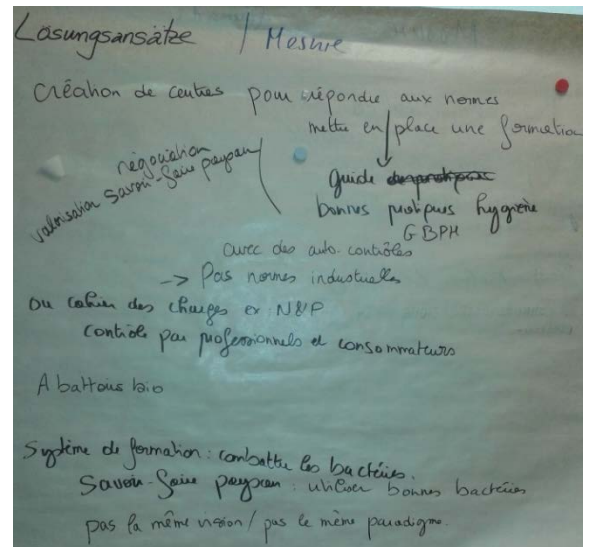 Lösungsansätze / Mesure
Création de centres pour répondre aux normes
mettre en place une formation
négociation
valorisation savoir-faire paysan
guide
bonnes pratiques hygiène
GBPH
avec des auto. contrôles
-> Pas normes industrielles
ou cahier des charges ex N&P
contrôle par professionnels et consommateurs
Abattoirs bio
Système de formation : combattre les bactéries.
Savoir-faire paysan : utiliser bonnes bactéries
pas la même vision / pas le même paradigme.